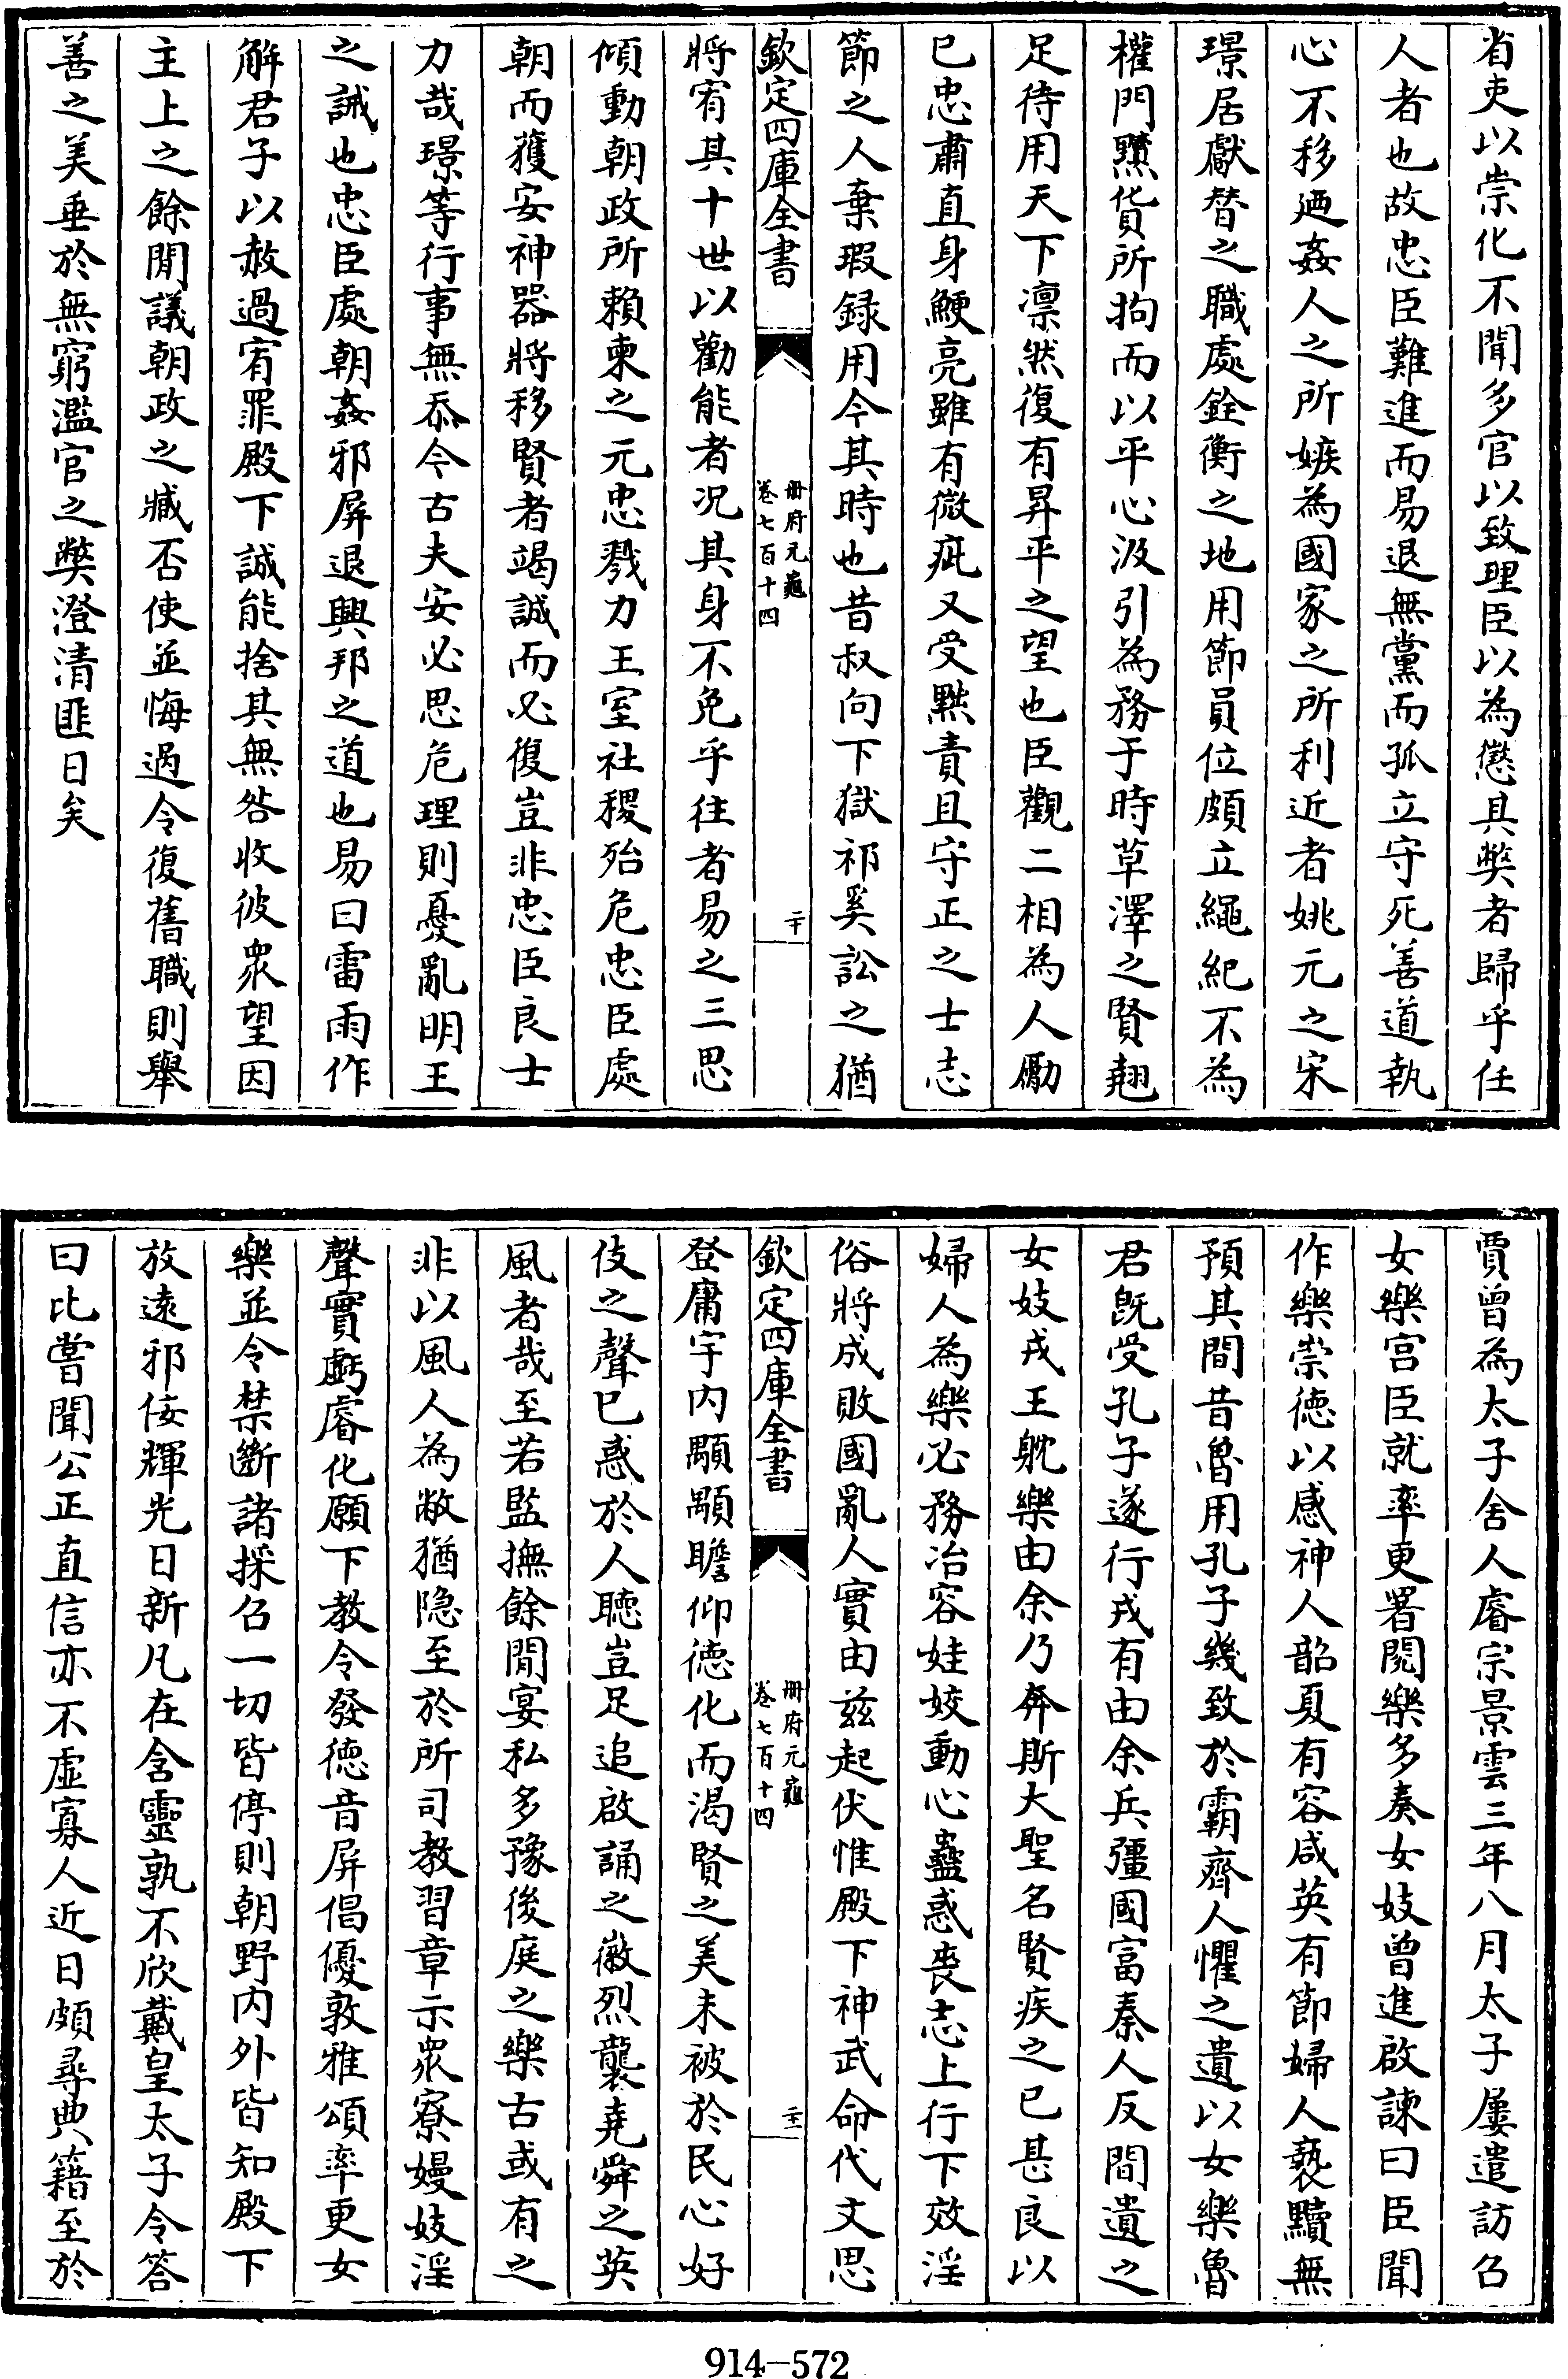 省吏以崇化不聞多官以致理臣以為懲其獘者歸乎任
人者也故忠臣難進而易退無黨而孤立守死善道執
心不移廼姦人之所嫉為國家之所利近者姚元之宋
璟居獻替之職處銓衡之地用節員位頗立繩紀不為
權門黷貨所拘而以平心汲引為務于時草澤之賢翹
足待用天下凛然復有昇平之望也臣觀二相為人勵
已忠肅直身鯁亮雖有微疵又受黜責且守正之士志
節之人棄瑕録用今其時也昔叔向下獄祁奚訟之猶
欽定四庫全書
冊府元龜
卷七百十四
二十
將宥其十世以勸能者况其身不免乎往者易之三思
傾動朝政所頼柬之元忠戮力王室社稷殆危忠臣處
朝而獲安神器將移賢者竭誠而必復豈非忠臣良士
力哉璟等行事無忝今古夫安必思危理則憂亂明王
之誡也忠臣處朝姦邪屏退興邦之道也易曰雷雨作
解君子以赦過宥罪殿下誠能捨其無咎收彼衆望因
主上之餘閒議朝政之臧否使並悔過令復舊職則舉
善之美垂於無窮濫官之獘澄清匪日矣
賈曾為太子舍人睿宗景雲三年八月太子屢遣訪召
女樂宫臣就率更署閱樂多奏女妓曾進啟諫曰臣聞
作樂崇徳以感神人韶夏有容咸英有節婦人褻黷無
預其間昔魯用孔子幾致於霸齊人懼之遺以女樂魯
君既受孔子遂行戎有由余兵彊國富秦人反間遺之
女妓戎王躭樂由余乃奔斯大聖名賢疾之已甚良以
婦人為樂必務冶容娃姣動心蠱惑喪志上行下效淫
俗將成敗國亂人實由兹起伏惟殿下神武命代文思
欽定四庫全書
冊府元龜
卷七百十四
二十一
登庸宇内顒顒瞻仰徳化而渴賢之美未被於民心好
伎之聲已惑於人聽豈足追啟誦之徽烈襲堯舜之英
風者哉至若監撫餘閒宴私多豫後庭之樂古或有之
非以風人為敝猶隐至於所司教習章示衆寮嫚妓淫
聲實虧睿化願下教令發徳音屏倡優敦雅頌率更女
樂並令禁斷諸採召一切皆停則朝野内外皆知殿下
放逺邪佞輝光日新凡在含靈孰不欣戴皇太子令答
曰比嘗聞公正直信亦不虚寡人近日頗尋典籍至於
914-572